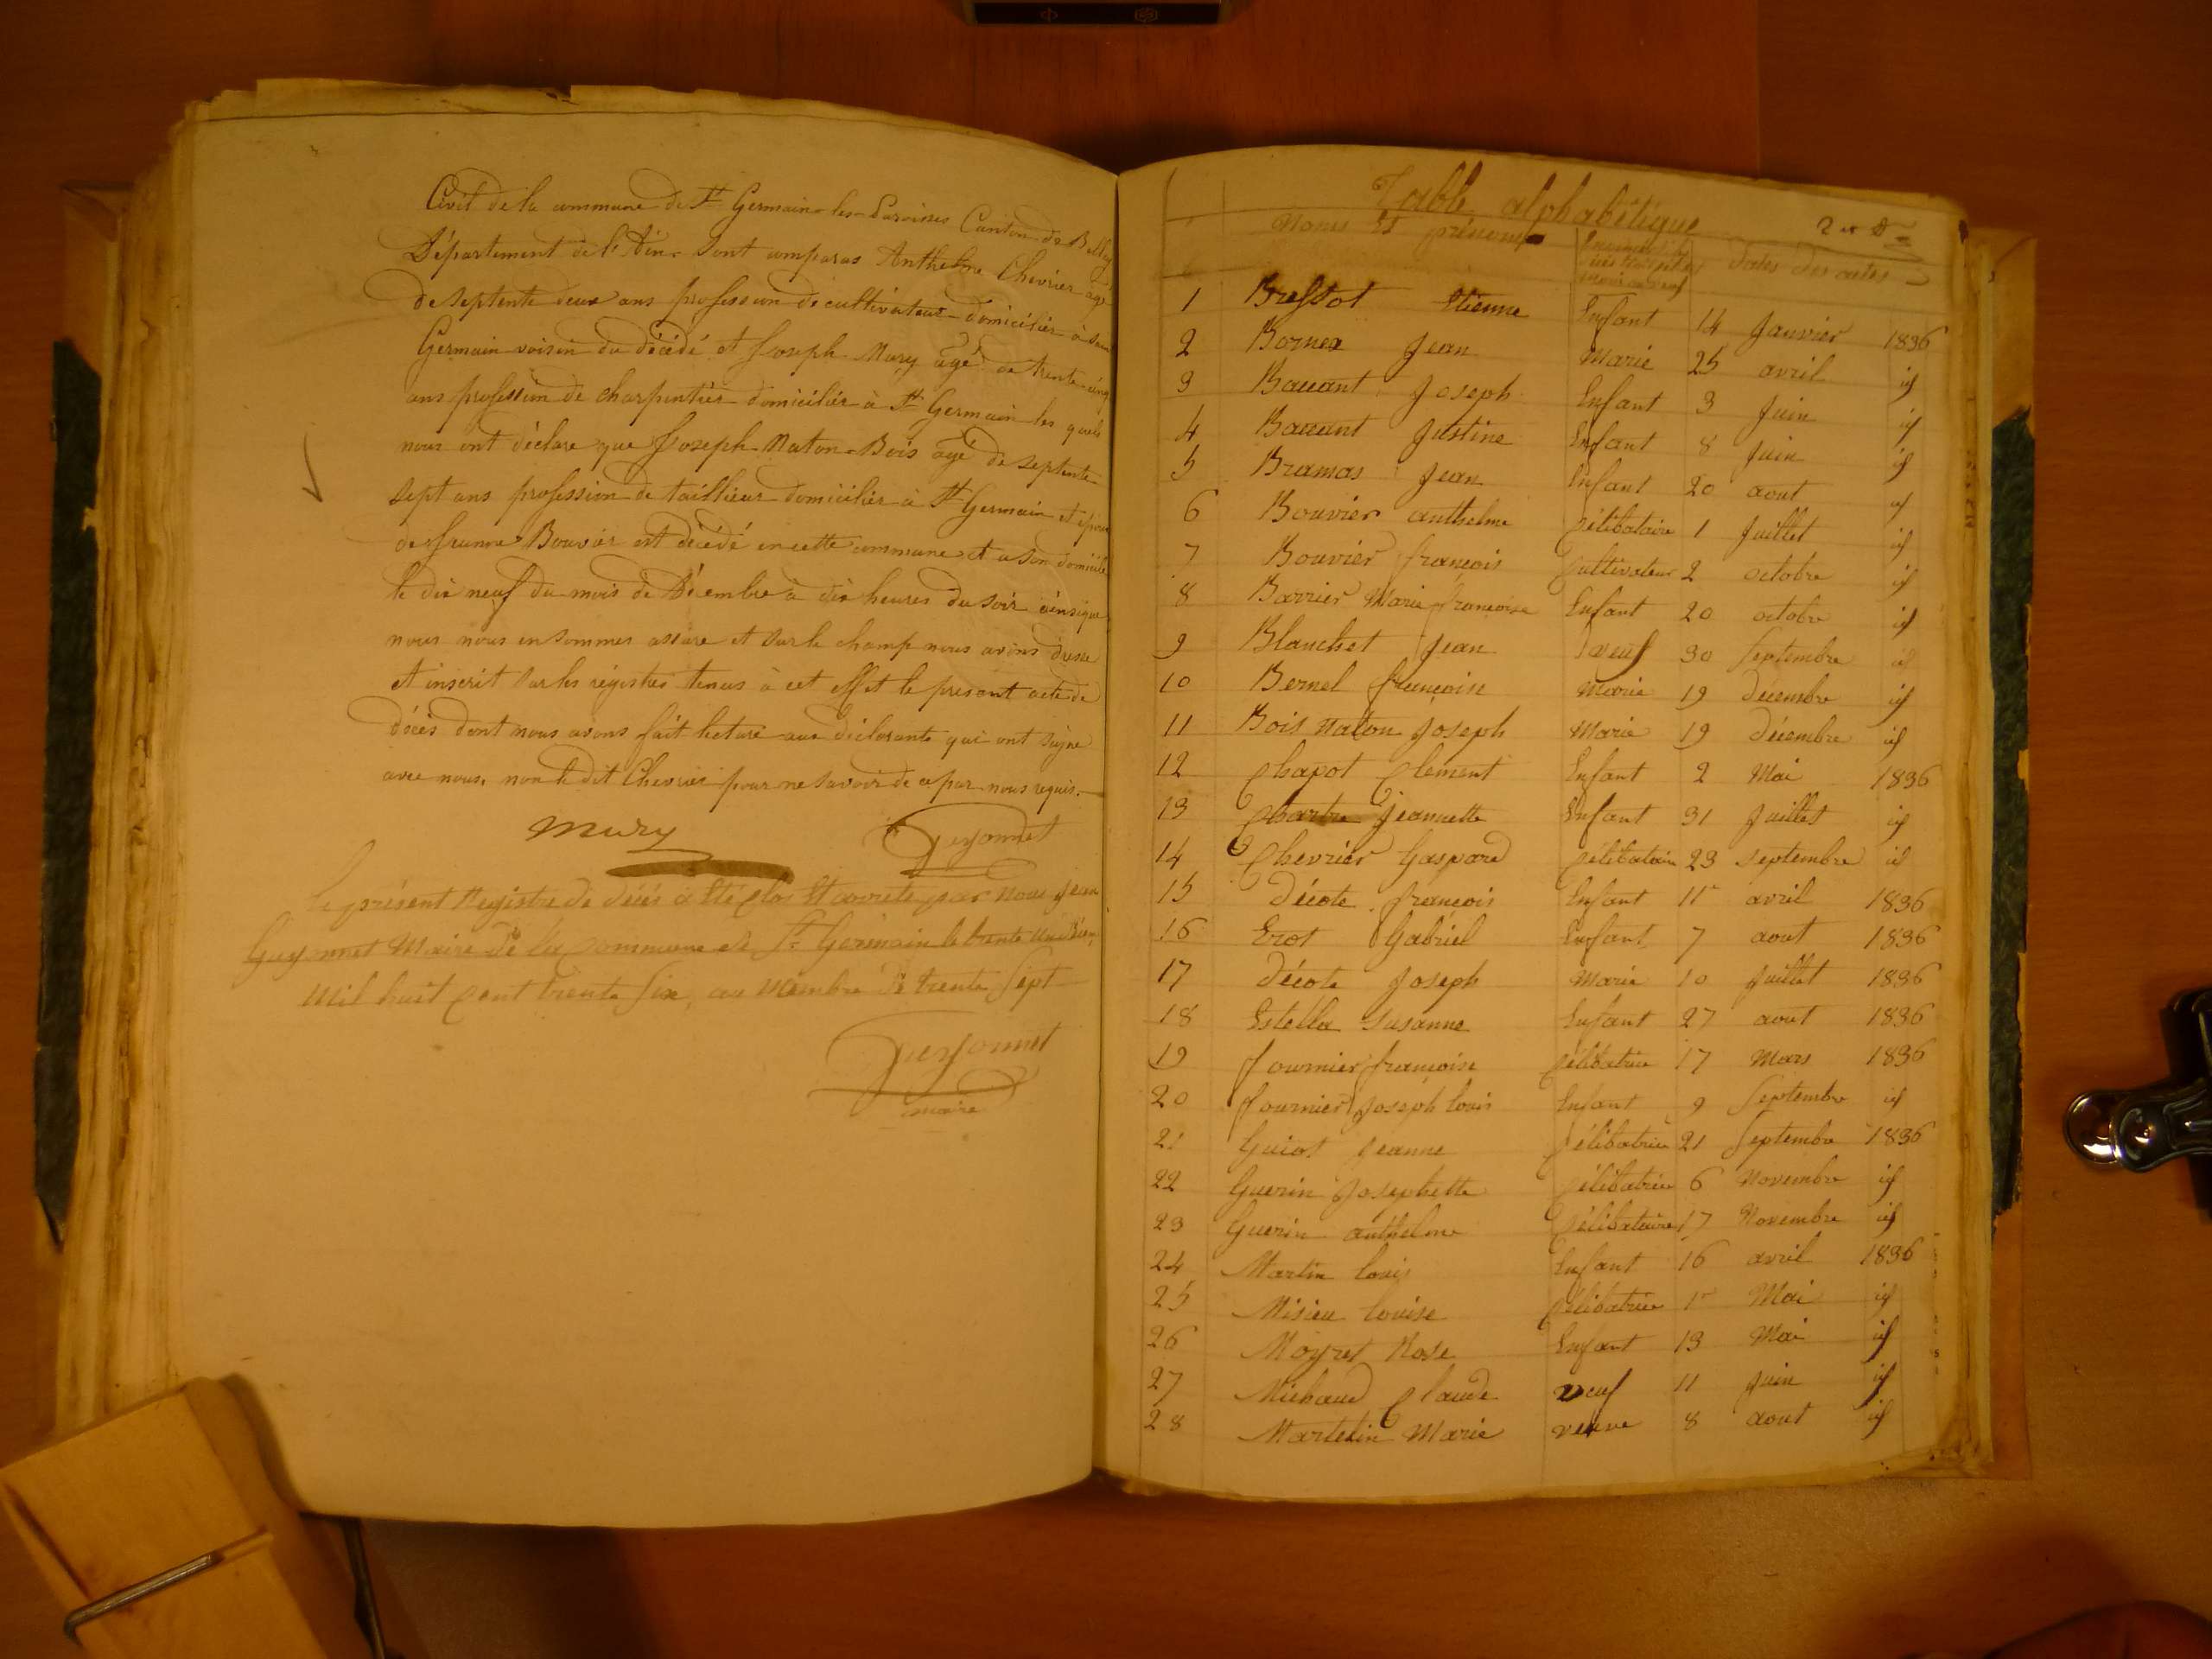 Civil de la commune de St Germain-les-Paroisses Canton de Belley
Département de l'Ain. Sont comparus Anthelme Chevrier agé
de septente deux ans profession de cultivateur domicilier à Saint
Germain voisin du décédé et Joseph Mury agé de trente-cinq
ans profession de charpentier domicilier à St Germain les quels
nous ont déclare que Joseph-Naton-Bois agé de septente
sept ans profession de taillieur domicilier à St Germain et époux
de Bouvier est décédé en cette commune et a son domicile
le dix neuf du mois de Décembre à dix heures du soir ainsi que
nous nous en sommes assure et sur le champ nous avons dresse
et inscrit sur les registres tenus à cet effet le present acte de
décès dont nous avons fait lecture aux déclarants qui ont signe
avec nous, non le dit Chevrier pour ne savoir de ce par nous requis.
Mury Guyonnet
le présent Registre de décés a été clos et arrete par nous jean
Guyonnet Maire de la commune de St Germain le trente un
Mil huit cent trente six, au nombre de trente sept
Guyonnet
maire
Table alphabétique
Noms et prénoms dates des actes
1 Bressot Etienne Enfant 14 Janvier 1836
2 Bornex Jean Marié 25 avril id
3 Bauant Joseph Enfant 3 Juin id
4 Bauant Justine Enfant 8 Juin id
5 Bramas Jean Enfant 20 aout id
6 Bouvier anthelme Célibataire 1 Juillet id
7 Bouvier françois Cultivateur 2 octobre id
8 Barrier Marie françoise Enfant 20 octobre id
9 Blanchet Jean veuf 30 Septembre id
10 Bernel françoise Marié 19 décembre id
11 Bois Naton Joseph Marié 19 décembre id
12 Chapot Clément Enfant 2 Mai 1836
13 Charbre Jeannette Enfant 31 Juillet id
14 Chevrier Gaspard Célibatain 23 septembre id
15 décote françois Enfant 11 avril 1836
16 Erot Gabriel Enfant 7 aout 1836
17 décote Joseph Marié 10 Juillet 1836
18 Estella Susanne Enfant 27 aout 1836
19 fournier françoise Célibatrice 17 Mars 1836
20 fournier Joseph louis Enfant 9 Septembre id
21 Guiot Jeanne Célibatrice 21 Septembre 1836
22 Guerin Josephette Célibatrice 6 Novembre id
23 Guerin anthelme Célibataire 17 Novembre id
24 Martin louis Enfant 16 avril 1836
25 Misieu louise Célibatrice 1r Mai id
26 Moyret Rose Enfant 13 Mai id
27 Michaud Claude veuf 11 Juin id
28 Martelin Marie veuve 8 aout id